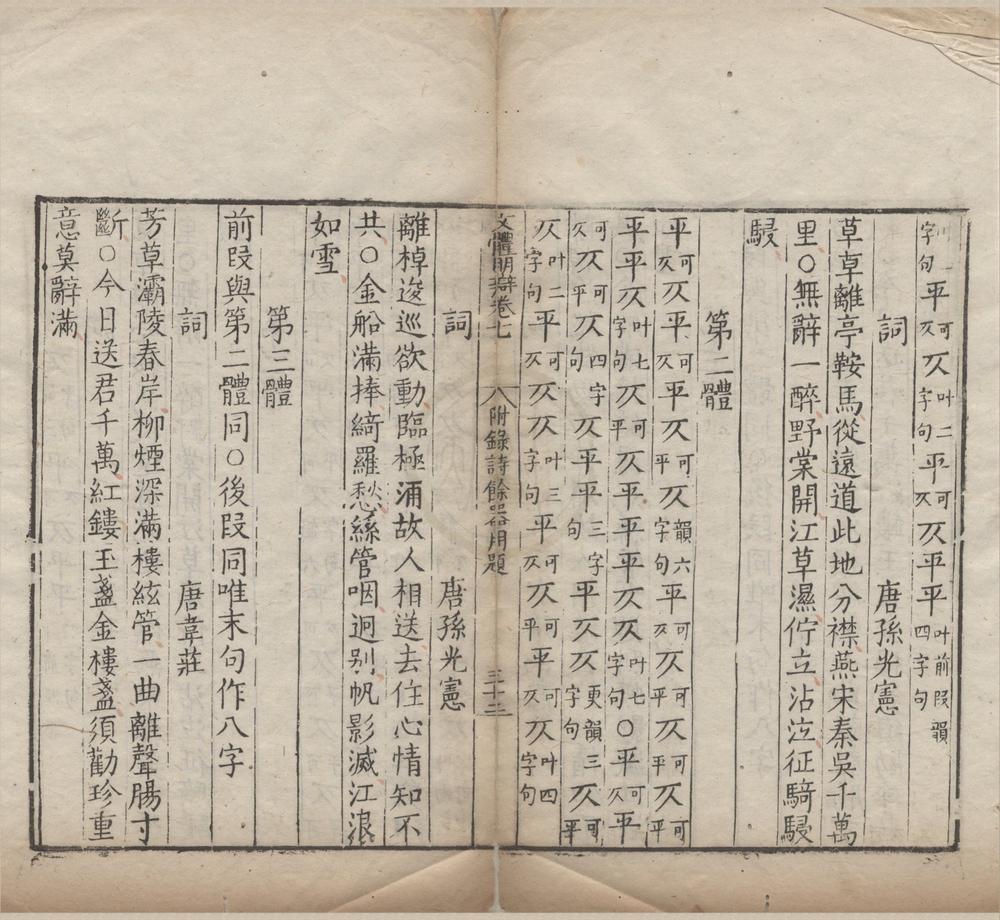 字句平可仄仄叶二字句平可仄仄平平叶前段韻四字句
詞　唐孫光憲
草草離亭鞍馬從遠道此地分襟燕宋秦吳千萬
里○無辭一醉野棠開江草濕佇立沾泣征騎駸
駸
第二體
平可仄仄平可仄平仄可平仄韻六字句平可仄平仄可平仄可平
平平仄叶七字句仄可平仄平平平仄仄叶七字句○平可仄平
可仄仄可平仄四字句仄仄平平三字句平仄仄更韻三字句仄可平
仄叶二字句平可仄仄仄叶三字句平可仄仄可平平可仄仄叶四字句
文體明辯卷七　附錄詩餘器用題　三十三
詞　唐孫光憲
離棹逡巡欲動臨極浦故人相送去住心情知不
共○金船滿捧綺羅愁絲管咽迥別帆影滅江浪
如雪
第三體
前段與第二體同○後段同唯末句作八字
詞　唐韋莊
芳草灞陵春岸柳煙深滿樓絃管一曲離聲腸寸
斷○今日送君千萬紅鏤玉盞金樓盞須勸珍重
意莫辭滿